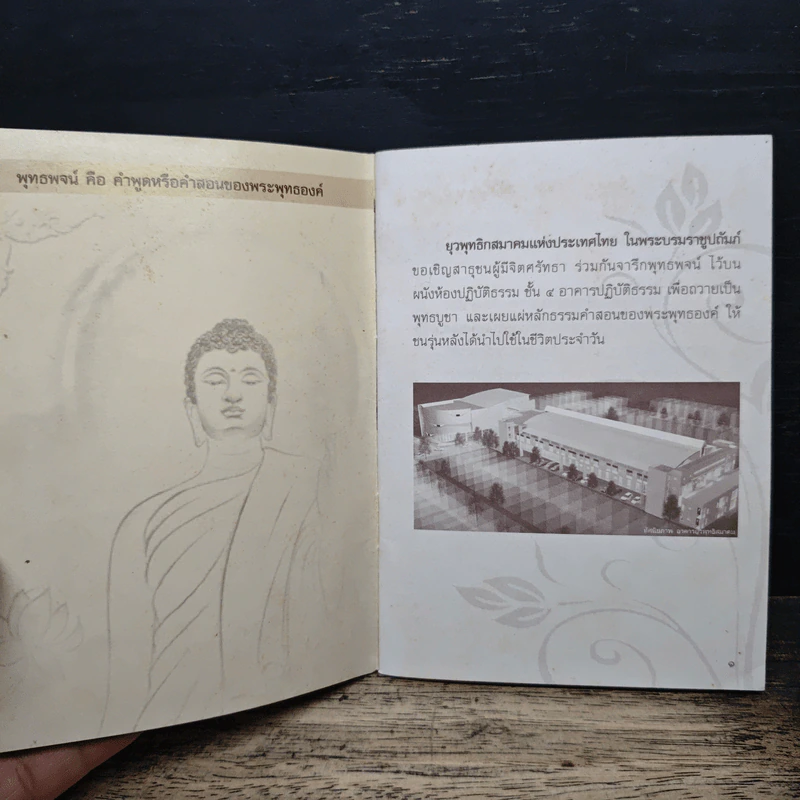 พุทธพจน์ คือ คำพูดหรือคำสอนของพระพุทธองค์
ยุวพุทธิกสมาคมแห่งประเทศไทย ในพระบรมราชูปถัมภ์
ขอเชิญสาธุชนผู้มีจิตศรัทธา ร่วมกันจารึกพุทธพจน์ ไว้บน
ผนังห้องปฏิบัติธรรม ชั้น ๔ อาคารปฏิบัติธรรม เพื่อถวายเป็น
พุทธบูชา และเผยแผ่หลักธรรมคำสอนของพระพุทธองค์ ให้
ชนรุ่นหลังได้นำไปใช้ในชีวิตประจำวัน
๑